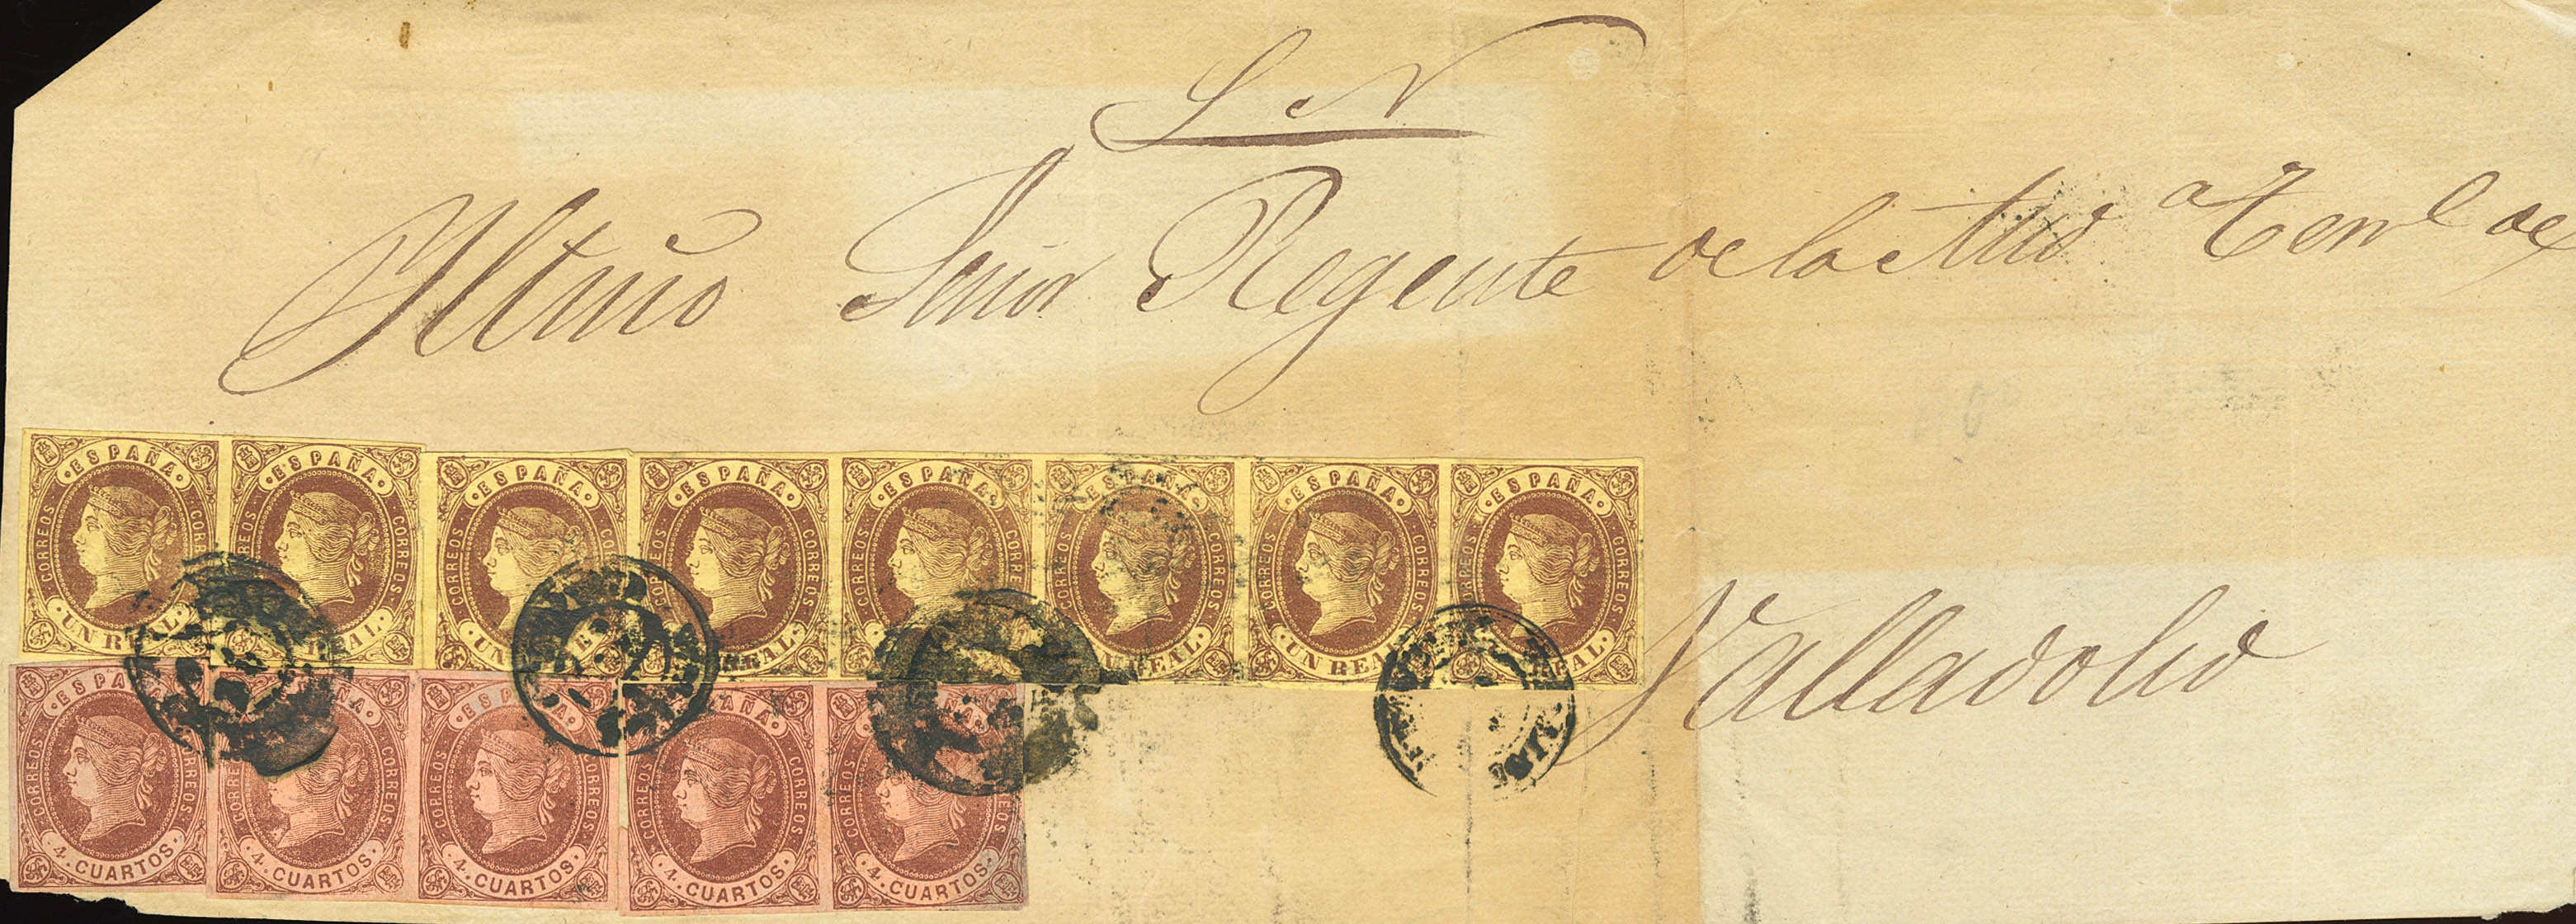 S N
Yltmo Señor Regente de la Aud.ª Terr.l de
Valladolid
ESPAÑA CORREOS CORREOS UN REAL
ESPAÑA CORREOS CORREOS REAL
ESPAÑA CORREOS CORREOS UN
ESPAÑA CORREOS CORREOS REAL
ESPAÑA CORREOS CORREOS
ESPAÑA CORREOS CORREOS UN REAL
ESPAÑA CORREOS CORREOS UN REAL
ESPAÑA CORREOS CORREOS REAL
ESPAÑA CORREOS CORREOS 4. CUARTOS
CORREOS CORREOS 4. CUARTOS
ESPAÑA CORREOS CORREOS 4. CUARTOS
ESPAÑA CORREOS CORREOS 4. CUARTOS
ESPAÑA CORREOS CORREOS 4. CUARTOS